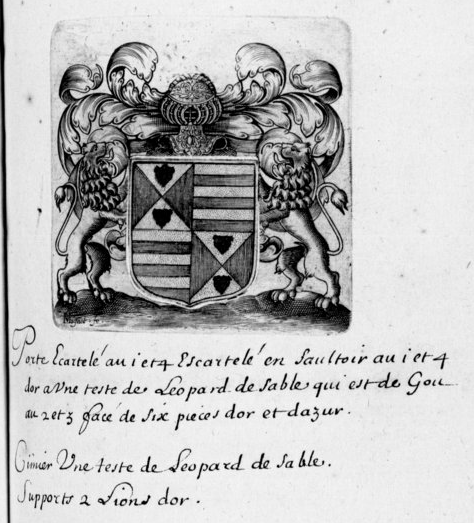 Porte Ecartelé au 1 et 4 Escartelé en Saultoir au 1 et 4
dor a Vne teste de Leopard de sable qui est de Gou
au 2 et 3 facé de six pieces dor et dazur.
Cimier Vne teste de Leopard de sable.
Supports 2 Lions dor.